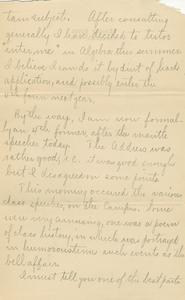 tain subjects. After consulting
generally I have decided to tutor
intensive in Algebra this summer.
I believe I can do it by dint of hard
application, and possibly enter the
4th form next year.
By the way, I am now formal-
ly a 4th former, after the
speeches today. The Address was
rather good, i.e. it was good enough
but I disagreed on some points
This morning occured the various
class speeches, on the Campus. Some
were very amusing, one was a poem
of class history, in which was portrayed
in humorous such events as the
bell affair
I must tell you one of the best parts